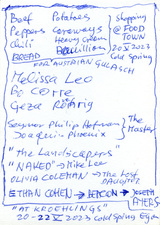 Beef Potatoes Shopping
Peppers Caraways @ FOOD
Chili Heavy Cream TOWN
BREAD Bouillon 20 X 2023
FOR AUSTRIAN GULASCH Cold Spring
Melissa Leo
Bo Cerre
Geza Röhrig
Seymour Philip Hofman The Master
Joaquin Phoenix
"The Landscapers"
"NAKED" → Mike Leo
OLIVIA COLEMAN → The Lost Daughter
ETHAN COHEN → → JOSEPH AYERS
"AT KROEHLINGS"
20-22 X 2023 Cold Spring